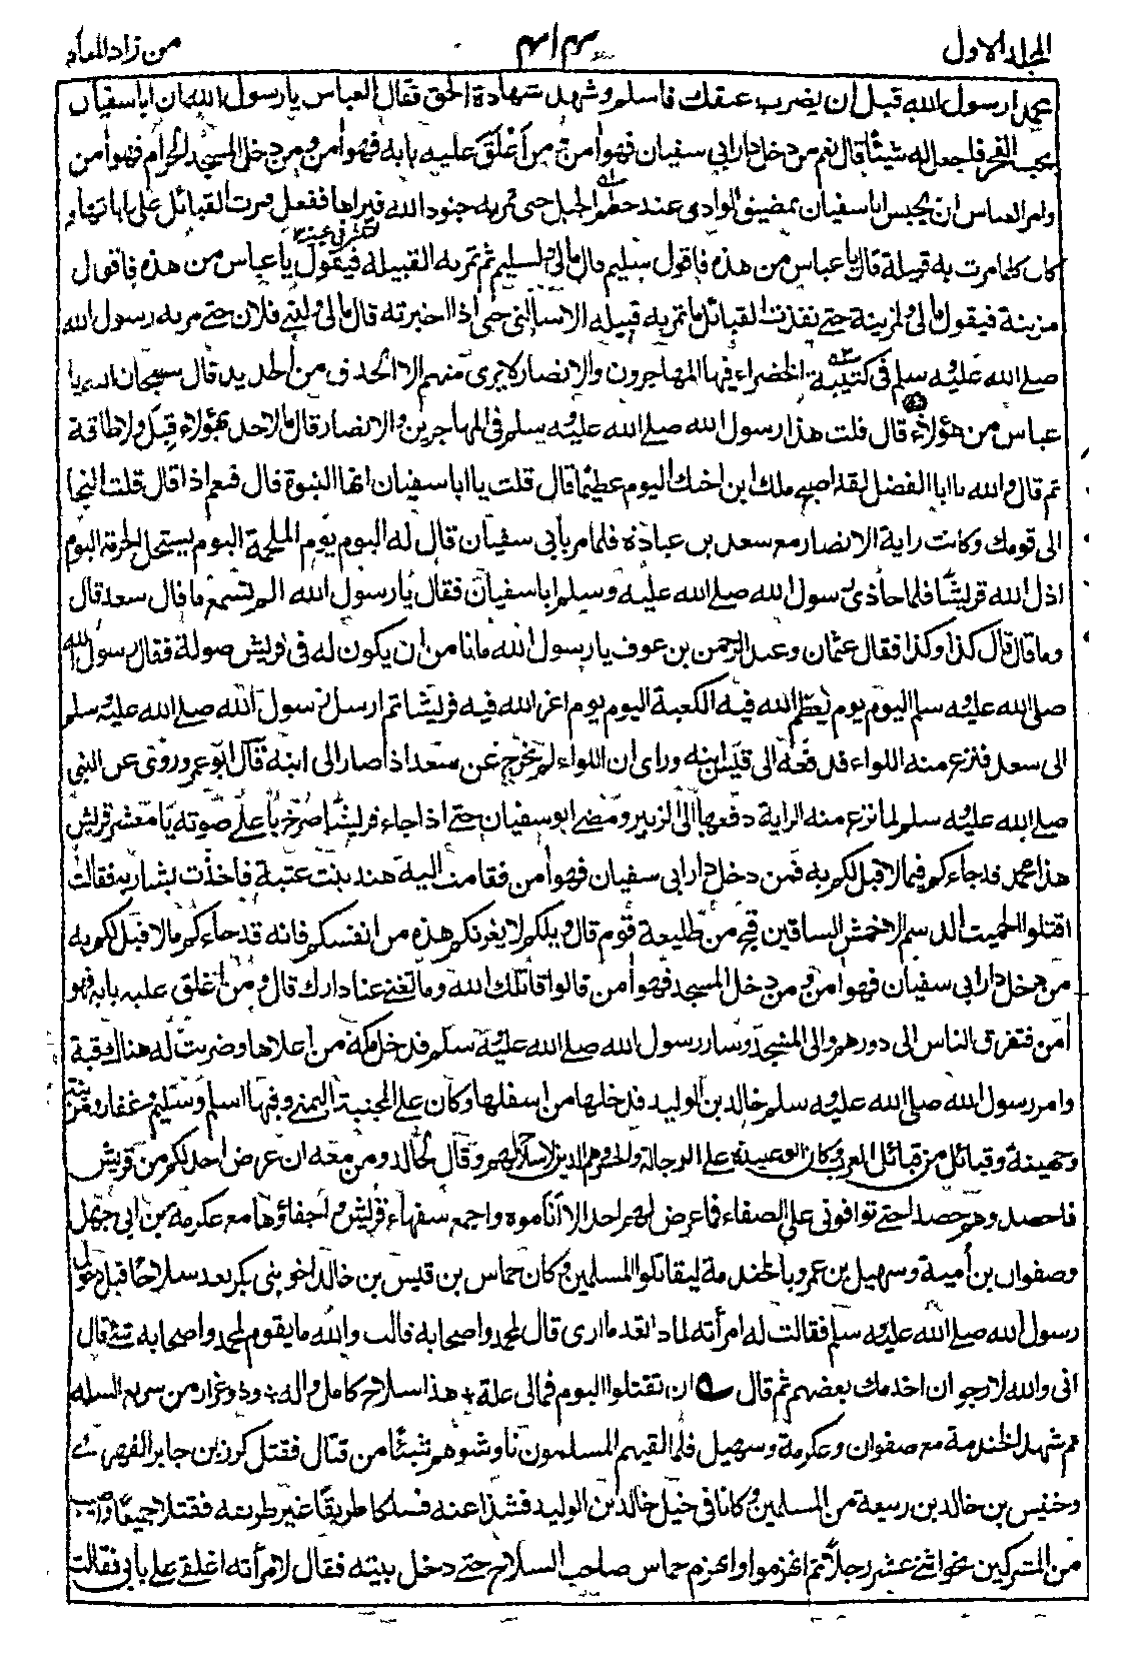 المجلد الاول
من زاد المعاد
محمدا رسول الله قبل ان يضرب عنقك فاسلم وشهد شهادة الحق فقال العباس يا رسول الله ان ابا سفيان
يحب الفخر فاجعل له شيئا قال نعم من دخل دار ابي سفيان فهو امن ومن اغلق عليه بابه فهو امن ومن دخل المسجد الحرام فهو امن
وامر العباس ان يحبس ابا سفيان بمضيق الوادى عند خطم الجبل حتى تمر به جنود الله فيراها ففعل فمرت القبائل على راياتها و
كان كلما مرت به قبيلة قال يا عباس من هذه فاقول سليم قال مالى ولسليم ثم تمر به القبيلة فيقول يا عباس من هذه فاقول
مزينة فيقول مالى ولمزينة حتى نفذت القبائل ما تمر به قبيلة الا سالنى حتى اذا اخبرته قال مالى ولبنى فلان حتى مر به رسول الله
صلى الله عليه وسلم فى كتيبة الخضراء فيها المهاجرون والانصار لا يرى منهم الا الحدق من الحديد قال سبحان الله يا
عباس من هؤلاء قال قلت هذا رسول الله صلى الله عليه وسلم فى المهاجرين والانصار قال ما لاحد بهؤلاء قبل ولا طاقة
ثم قال والله يا ابا الفضل لقد اصبح ملك ابن اخيك اليوم عظيما قال قلت يا ابا سفيان انها النبوة قال فنعم اذا قال قلت النجا
الى قومك وكانت راية الانصار مع سعد بن عبادة فلما مر بابى سفيان قال له اليوم يوم الملحمة اليوم يستحل الحرمة اليوم
اذل الله قريشا فلما حاذى رسول الله صلى الله عليه وسلم ابا سفيان فقال يا رسول الله الم تسمع ما قال سعد قال
وما قال قال كذا وكذا فقال عثمان وعبد الرحمن بن عوف يا رسول الله ما نامن ان يكون له فى قريش صولة فقال رسول الله
صلى الله عليه وسلم اليوم يوم يعظم الله فيه الكعبة اليوم يوم اعز الله فيه قريشا ثم ارسل رسول الله صلى الله عليه وسلم
الى سعد فنزع منه اللواء فدفعه الى قيس ابنه وراى ان اللواء لم يخرج عن سعد اذا صار الى ابنه قال ابو عمر وروى عن النبى
صلى الله عليه وسلم لما نزع منه الراية دفعها الى الزبير ومضى ابو سفيان حتى اذا جاء قريشا صرخ باعلى صوته يا معشر قريش
هذا محمد قد جاءكم فيما لا قبل لكم به فمن دخل دار ابى سفيان فهو امن فقامت اليه هند بنت عتبة فاخذت بشاربه فقالت
اقتلوا الحميت الدسم الاخمش الساقين قبح من طليعة قوم قال ويلكم لا يغرنكم هذه من انفسكم فانه قد جاءكم ما لا قبل لكم به
من دخل دار ابى سفيان فهو امن ومن دخل المسجد فهو امن قالوا قاتلك الله وما تغنى عنا دارك قال ومن اغلق عليه بابه فهو
امن فتفرق الناس الى دورهم والى المسجد وسار رسول الله صلى الله عليه وسلم فدخل مكة من اعلاها وضربت له هنالك قبة
وامر رسول الله صلى الله عليه وسلم خالد بن الوليد فدخلها من اسفلها وكان على المجنبة اليمنى وفيها اسلم وسليم وغفار ومزينة
وجهينة وقبائل من قبائل العرب وكان ابو عبيدة على الرجالة والحسر وهم الذين لا سلاح معهم وقال لخالد ومن معه ان عرض احد لكم من قريش
فاحصدوهم حصدا حتى توافونى على الصفاء فما عرض لهم احد الا اناموه واجمع سفهاء قريش واخفاؤها مع عكرمة بن ابى جهل
وصفوان بن امية وسهيل بن عمرو بالخندمة ليقاتلوا المسلمين وكان حماس بن قيس بن خالد اخو بنى بكر يعد سلاحا قبل دخول
رسول الله صلى الله عليه وسلم فقالت له امرأته لماذا تعد ما ارى قال لمحمد واصحابه قالت والله ما يقوم لمحمد واصحابه شئ قال
انى والله لارجو ان اخدمك بعضهم ثم قال ان تقتلوا اليوم فمالى علة ٭ هذا سلاح كامل واله ٭ وذو غرارين سريع السله
ثم شهد الخندمة مع صفوان وعكرمة وسهيل فلما لقيهم المسلمون ناوشوهم شيئا من قتال فقتل كرز بن جابر الفهرى
وخنيس بن خالد بن ربيعة من المسلمين وكانا فى خيل خالد بن الوليد فشذا عنه فسلكا طريقا غير طريقه فقتلا جميعا واصيب
من المشركين نحو اثنى عشر رجلا ثم انهزموا وانهزم حماس صاحب السلاح حتى دخل بيته فقال لامرأته اغلقى على بابى فقالت